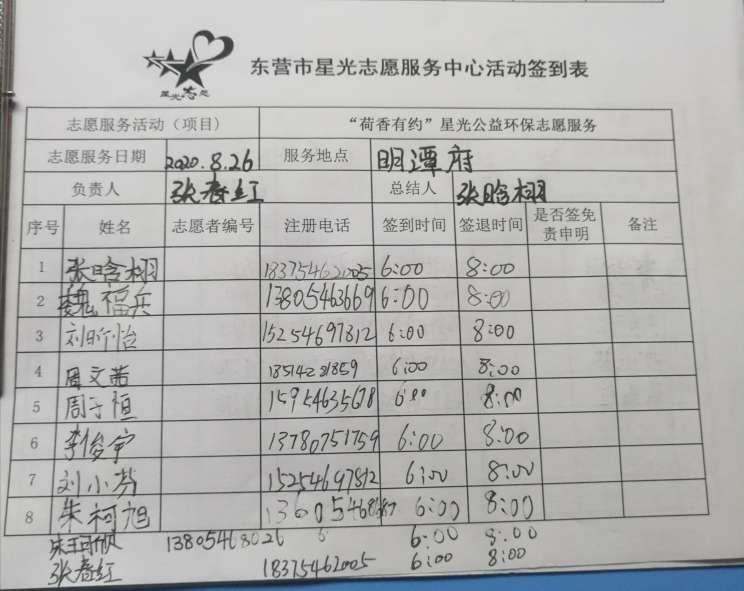 星光志愿
东营市星光志愿服务中心活动签到表
志愿服务活动（项目） “荷香有约”星光公益环保志愿服务
志愿服务日期 2020.8.26 服务地点 明潭府
负责人 张春红 总结人 张晗栩
序号 姓名 志愿者编号 注册电话 签到时间 签退时间 是否签免责申明 备注
1 张晗栩 18375462005 6:00 8:00
2 魏福兵 13805463669 6:00 8:00
3 刘昕怡 15254697812 6:00 8:00
4 周文茜 6:00 8:00
5 周子恒 15954635678 6:00 8:00
6 李俊宇 13780751759 6:00 8:00
7 刘小芬 15254697812 6:00 8:00
8 朱柯旭 6:00 8:00
13805468026 6:00 8:00
张春红 18375462005 6:00 8:00